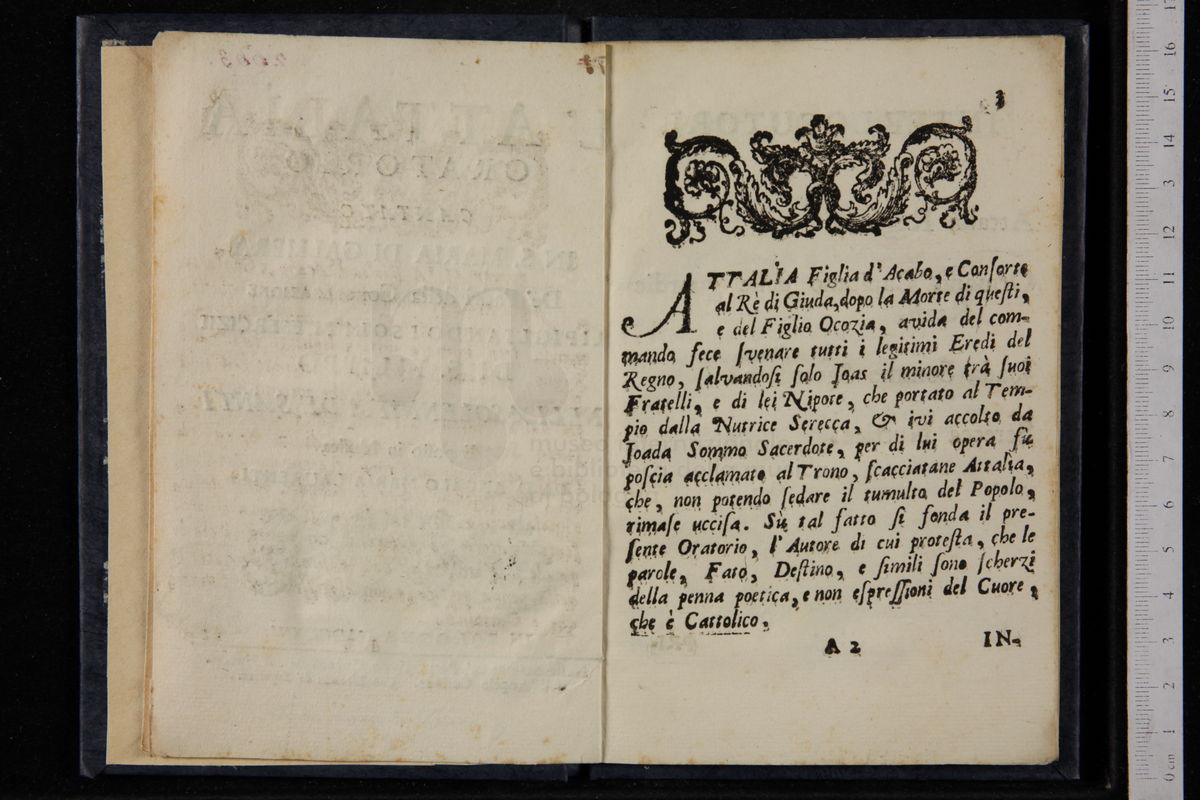 3
ATTALIA Figlia d'Acabo, e Consorte
al Rè di Giuda, dopo la Morte di questi,
e del Figlio Ocozia, avida del com-
mando fece svenare tutti i legitimi Eredi del
Regno, salvandosi solo Joas il minore trà suoi
Fratelli, e di lei Nipote, che portato al Tem-
pio dalla Nutrice Serecca, & ivi accolto da
Joada Sommo Sacerdote, per di lui opera fù
poscia acclamato al Trono, scacciatane Attalia,
che, non potendo sedare il tumulto del Popolo,
rimase uccisa. Sù tal fatto si fonda il pre-
sente Oratorio, l'Autore di cui protesta, che le
parole, Fato, Destino, e simili sono scherzi
della penna poetica, e non espressioni del Cuore,
che è Cattolico.
A 2 IN-